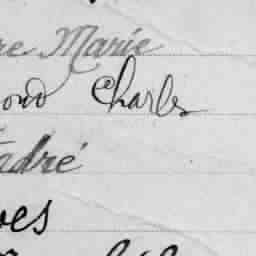 re Marie
ond Charles
André
es